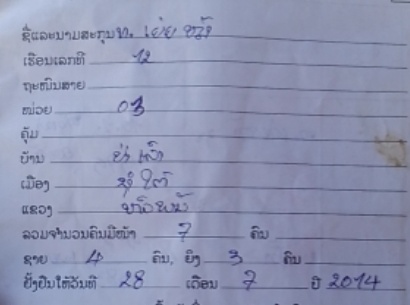 ຊື່ແລະນາມສະກຸນ ທ. ເຢ່ຍ ຫວ້າ
ເຮືອນເລກທີ 12
ຖະໜົນສາຍ
ໜ່ວຍ 03
ຄຸ້ມ
ບ້ານ
ເມືອງ ໃຕ້
ແຂວງ
ລວມຈຳນວນຄົນມີໜ້າ 7 ຄົນ
ຊາຍ 4 ຄົນ, ຍິງ 3 ຄົນ
ຢັ້ງຢືນໃຫ້ວັນທີ 28 ເດືອນ 7 ປີ 2014